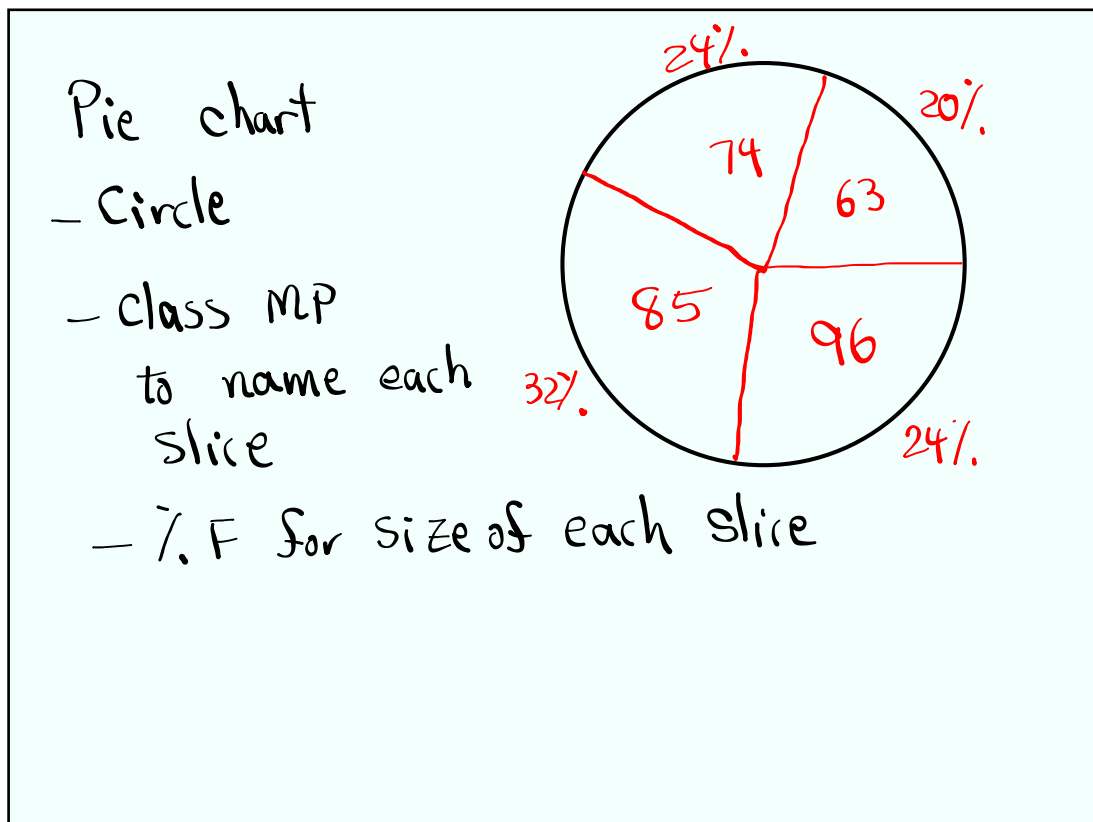 Pie chart
- Circle
- Class MP
to name each
slice
- % F for size of each slice
24%
20%
74
63
85
96
32%
24%